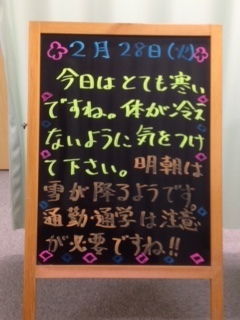 2月28日(火)
今日はとても寒い
ですね。体が冷え
ないように気をつけ
て下さい。明朝は
雪が降るようです。
通勤・通学は注意
が必要ですね!!